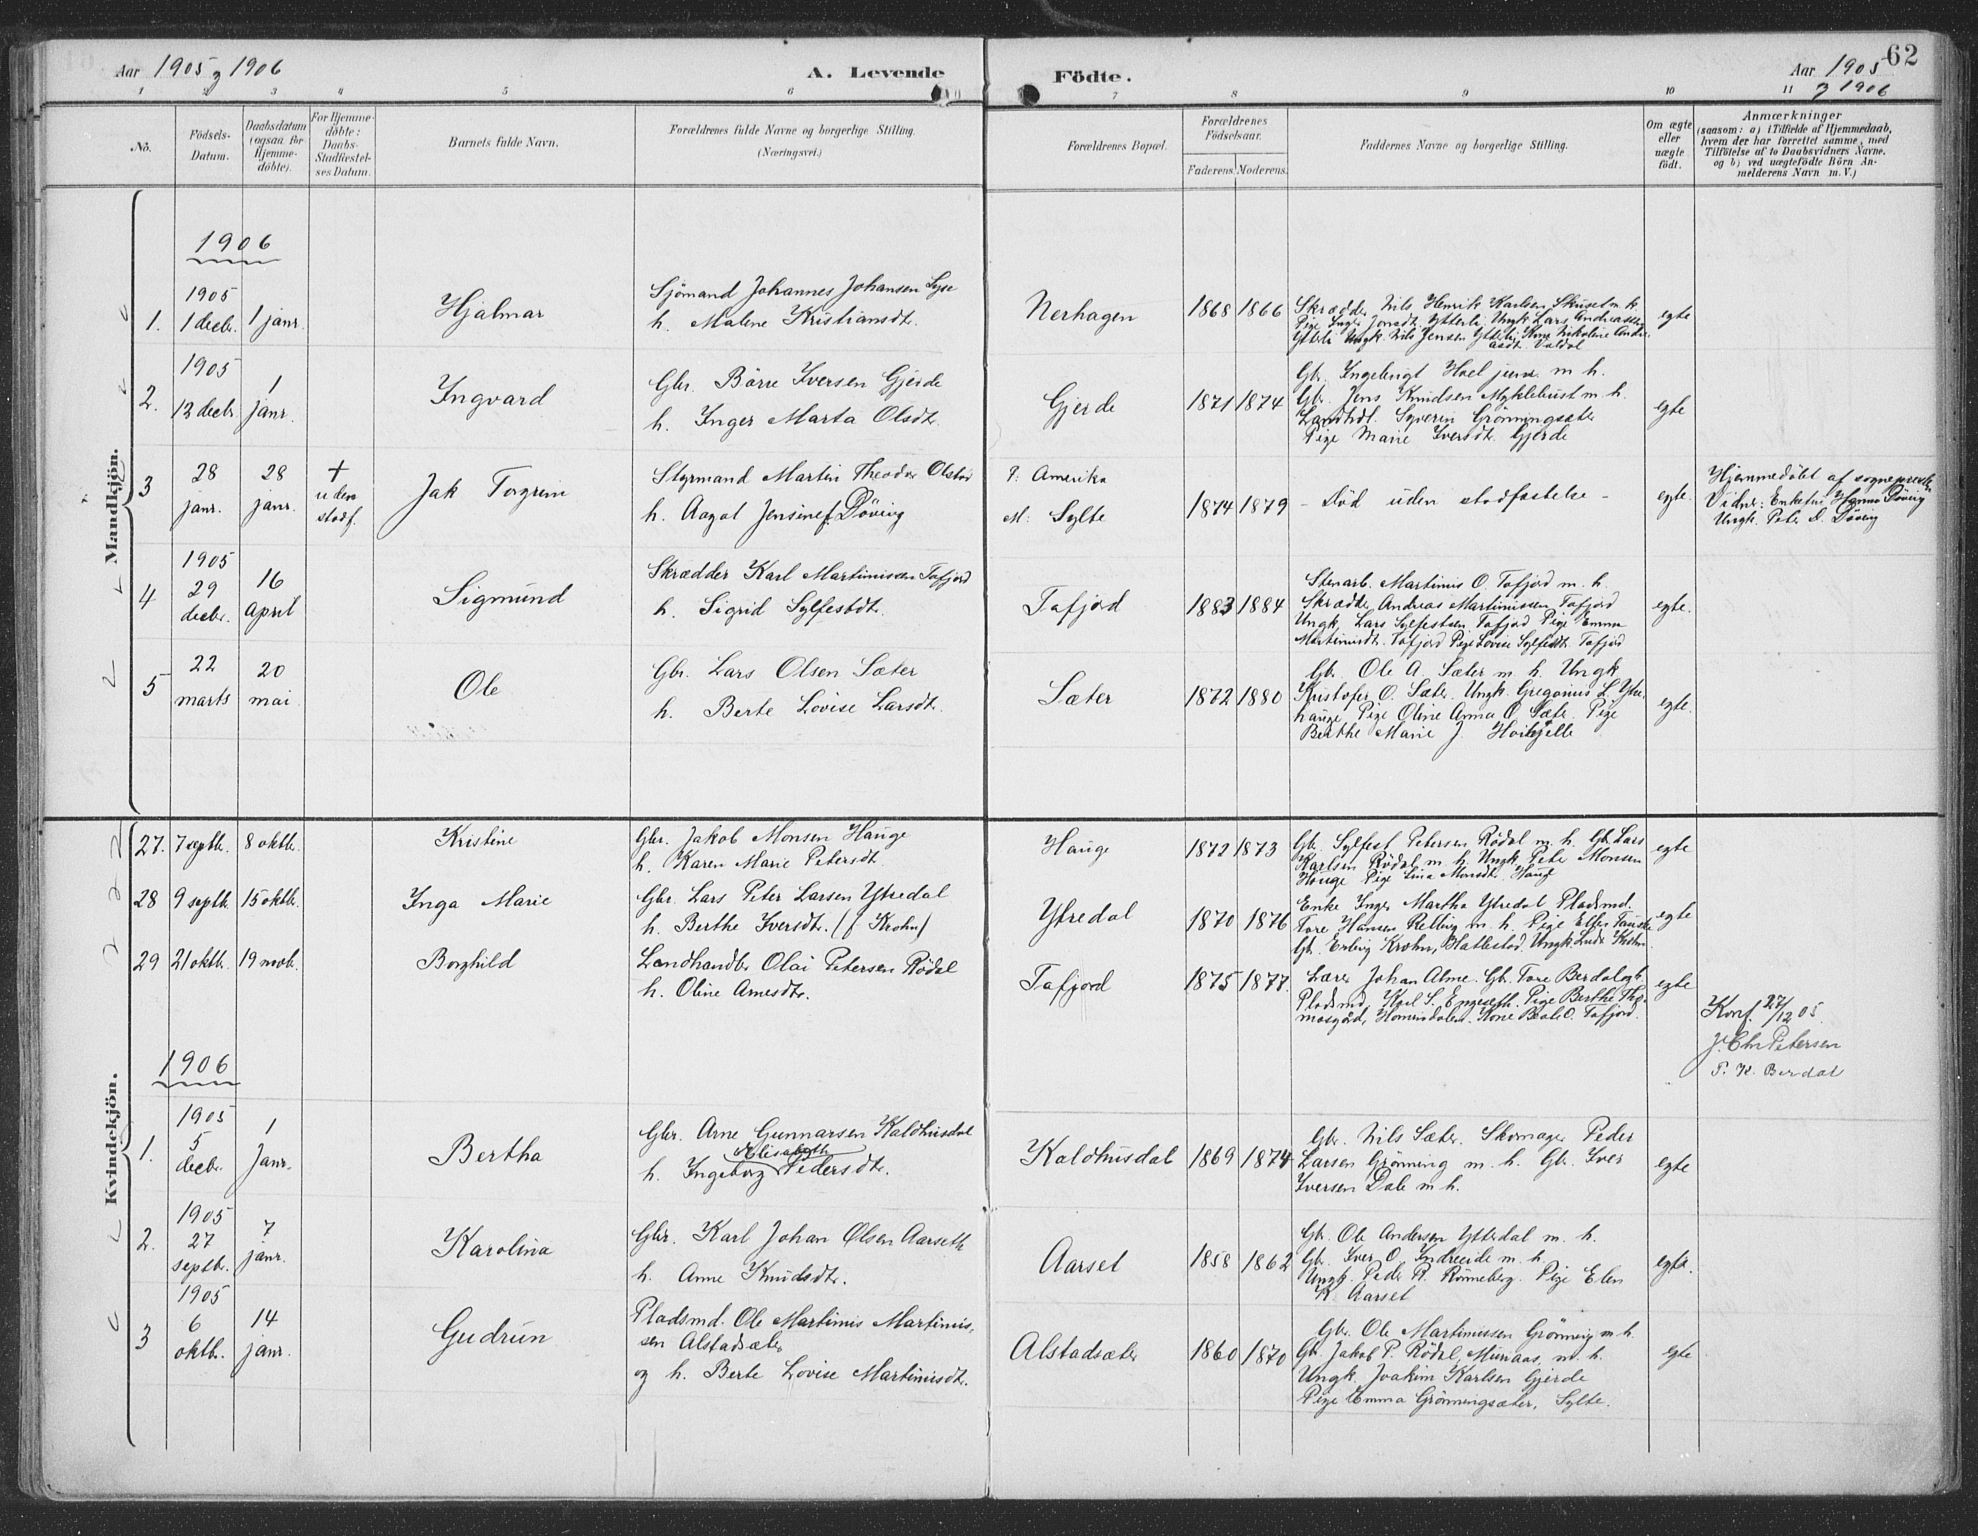 Aar 1905 og 1906
A. Levende Födte.
Aar 1905 og 1906
62
1 2 3 4 5 6 7 8 9 10 11
No.
Födsels-Datum.
Daabsdatum (ogsaa for Hjemme-döbte).
For Hjemme-döbte: Daabs-Stadfæstel-ses Datum.
Barnets fulde Navn.
Forældrenes fulde Navne og borgerlige Stilling.
(Næringsvei.)
Forældrenes Bopæl.
Forældrenes Födselsaar.
Faderens. Moderens.
Faddernes Navne og borgerlige Stilling.
Om ægte eller uægte födt.
Anmærkninger
(saasom: a) i Tilfælde af Hjemmedaab,
hvem der har forrettet samme, med
Tilföielse af to Daabsvidners Navne,
og b) ved uægtefödte Börn An-
melderens Navn m. V.)
Mandkjön.
1906
1. 1905 1 decb. 1 janr. Hjalmar
Sjömand Johannes Johansen Lyse
h. Malene Kristiansdt.
Nerhagen 1868 1866
Skrædder Nils Henrik Karlsen Skuset m. h.
Pige Inger Jonsdt. Ytterli Ungk. Lars Andreassen
Ytterli Ungk. Nils Jensen Ytterli, Kone Nikoline Andre-
asdt. Valdal
egte
2. 1905 12 decb. 1 janr. Ingvard
Gbr. Börre Iversen Gjerde
h. Inger Marta Olsdt.
Gjerde 1871 1874
Gbr. Ingebrigt Hoel m. h.
Gbr. Jens Knudsen Myklebust m. h.
Landhdl. Syverin Grönningsæter
Pige Marie Iversdt. Gjerde
egte
3 28 janr. 28 janr. + uden stadf. Jak Torgrim
Styrmand Martin Theodor Olstad
h. Aagot Jensine f. Döving
F: Amerika
M: Sylte
1874 1879
- Död uden stadfæstelse -
egte
Hjemmedöbt af sogneprester
Vidner: Enkefru Hanna Döving
Ungk. Peter D. Döving
4 1905 29 decbr. 16 April Sigmund
Skrædder Karl Martinussen Tafjord
h. Sigrid Sylfestdt.
Tafjord 1883 1884
Stenarb. Martinus O. Tafjord m. h.
Skrædder Andreas Martinussen Tafjord
Ungk. Lars Sylfestsen Tafjord Pige Emma
Martinusdt. Tafjord Pige Lovise Sylfestdt. Tafjord
egte.
5 22 marts 20 mai Ole
Gbr. Lars Olsen Sæter
h. Berte Lovise Larsdt.
Sæter 1872 1880
Gbr. Ole A. Sæter m. h. Ungk.
Kristofer O. Sæter. Ungk. Gregorius L. Ytre-
hauge Pige Oline Anna O. Sæter. Pige
Berthe Marie J.
egte.
Kvindekjön.
27. 7 septb. 8 oktb. Kristine
Gbr. Jakob Monsen Hauge
h. Karen Marie Petersdt.
Hauge 1872 1873
Gbr. Sylfest Petersen Rödal m. h. Gbr. Lars
Karlsen Rödal m. h. Ungk. Peter Monsen
Hauge Pige Lina Monsdt. Hauge
egte
28 9 septb. 15 oktb. Inga Marie
Gbr. Lars Peter Larsen Ytredal
h. Berthe Iversdt. (f. Krohn)
Ytredal 1870 1876
Enke Inger Martha Ytredal Pladsmd.
Tore Hansen Relling m. h. Pige Ellen
Gbr. Erling Krohn, Hatlestad. Ungk. Krohn
egte
29 21 oktb. 19 novb. Borghild
Landhandler Olai Petersen Rödal
h. Oline Arnesdt.
Tafjord 1875 1877.
Lærer Johan Alme. Gbr. Tore Berdal og h.
Pladsmd. Karl S. Engeseth. Pige Berthe Tho-
masgård, Hornindalen. Kone Beate O. Tafjord.
egte
Konf. 27/12 05.
J. Chr Petersen
P. K. Berdal
1906
1. 1905 5 decb. 1 Janr. Bertha
Gbr. Arne Gunnarsen Kaldhusdal
Elisabeth
h. Ingeborg Pedersdt.
Kaldhusdal 1869 1874
Gbr. Nils Sæter. Skomager Peder
Larsen Grönning m. h. Gbr. Iver
Iversen Dale m. h.
egte
2. 1905 27 septbr. 7 janr. Karolina
Gbr. Karl Johan Olsen Aarseth
h. Anne Knudsdtr.
Aarset 1858 1862
Gbr. Ole Andersen Ytterdal m. h.
Gbr. Iver O. Indreeide m. h.
Ungk. Peder R. Rönneberg. Pige Elen
K. Aarset
egte.
3 1905 6 oktb. 14 janr. Gudrun
Pladsmd. Ole Martinus Martinus-
sen Alstadsæter
og h. Berte Lovise Martinusdt.
Alstadsæter 1860 1870
Gbr. Ole Martinussen Grönning m. h.
Gbr. Jakob P. Rödal, Muriaas, m. h.
Ungk. Joakim Karlsen Gjerde
Pige Emma Grönningsæter, Sylte.
egte